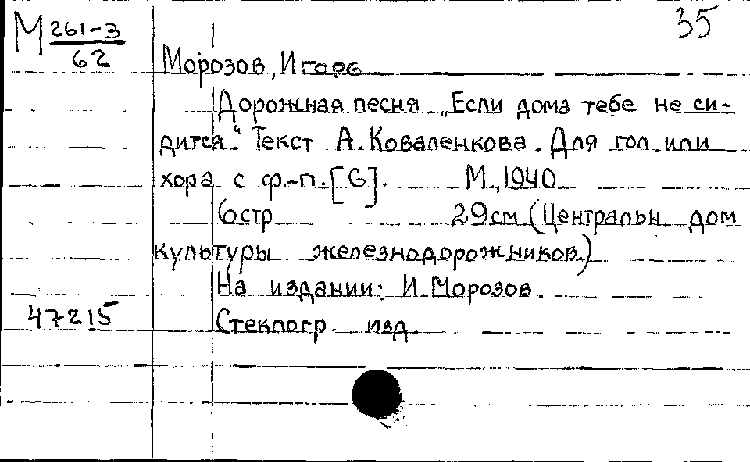 М 261-3
62
35
Морозов, Игорь
Дорожная песня „Если дома тебе не си-
дится." Текст А. Коваленкова. Для гол. или
хора с ф.-п. [G]. М., 1940
6 стр 29 см (Центральн дом
культуры железнодорожников)
На издании: И. Морозов.
47215
Стеклогр изд